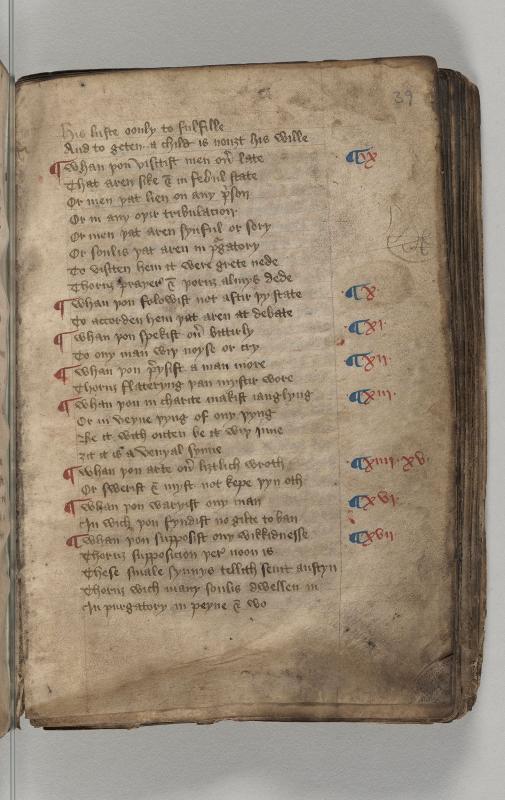 39
His luste oonly to fulfille
And to geten a child is nouȝt his wille
¶ Whan þou visitist men ou͛ late ¶ ix
That aren sike & in febul state
Or men þat lien on any p͛son
Or in any oþir tribulacion
Or men þat aren synful or sory
Or soulis þat aren in p͛gatory
To visiten hem it were grete nede
Thoruȝ prayer & þoruȝ almys dede
¶ Whan þou folowist not aftir þy state ¶ x
To accorden hem þat aren at debate
¶ Whan þou spekist ou͛ bittirly ¶ xi
To ony man wiþ noyse or cry
¶ Whan þou p͛ysist a man more ¶ xii
Thoruȝ flateryng þan mystir wore
¶ Whan þou in charite makist iangylyng ¶ xiii
Or in veyne þyng of ony þyng
Be it with outten be it wiþ inne
ȝit it is a venyal synne
¶ Whan þou arte ou͛ liȝtlich wroth ¶ xiiii xv
Or swerist & myst not kepe þyn oth
¶ Whan þou waryist ony man ¶ xvi
In wich þou fyndist no gilte to ban
¶ Whan þou supposist ony wikkidnesse ¶ xvii
Thoruȝ supposicion þer noon is
These smale synnys tellith seint austyn
Thoruȝ wich many soulis dwellen in
In purgatory in peyne & wo